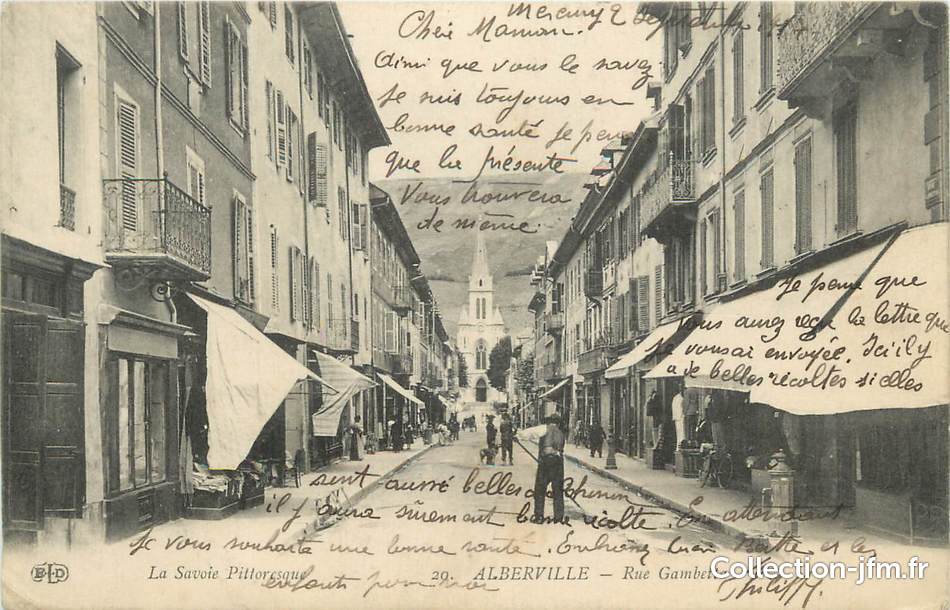 Mercury 2 Septembre
Chère Maman.
Ainsi que vous le savez
Je suis toujours en
bonne santé Je pense
que la présente
Vous trouvera
de même.
Je pense que
Vous aurez reçu la lettre que
Je vous ai envoyée. Ici il y
a de belles récoltes si elles
sont aussi belles
il y aura sûrement une bonne récolte. En attendant
Je vous souhaite une bonne santé. Embrassez et les
enfants pour moi
ELD
La Savoie Pittoresque 29. ALBERVILLE - Rue Gambetta
Collection-jfm.fr